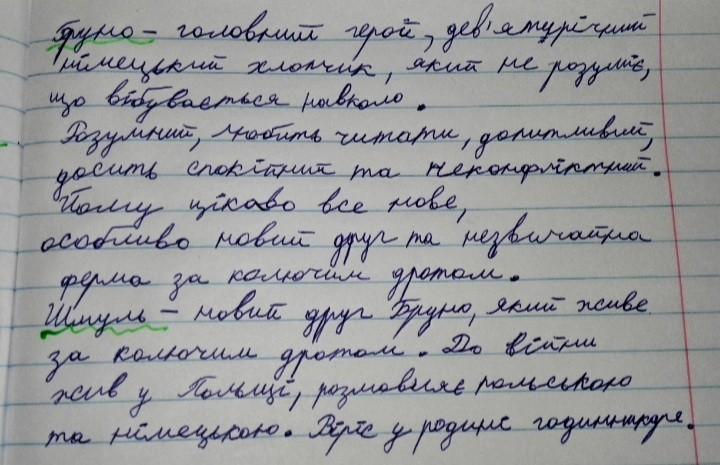 Бруно – головний герой, дев'ятирічний
німецький хлопчик, який не розуміє,
що відбувається навколо.
Розумний, любить читати, допитливий,
досить спокійний та неконфліктний.
Йому цікаво все нове,
особливо новий друг та незвичайна
ферма за колючим дротом.
Шмуль – новий друг Бруно, який живе
за колючим дротом. До війни
жив у Польщі, розмовляє польською
та німецькою. Виріс у родині годинникаря.